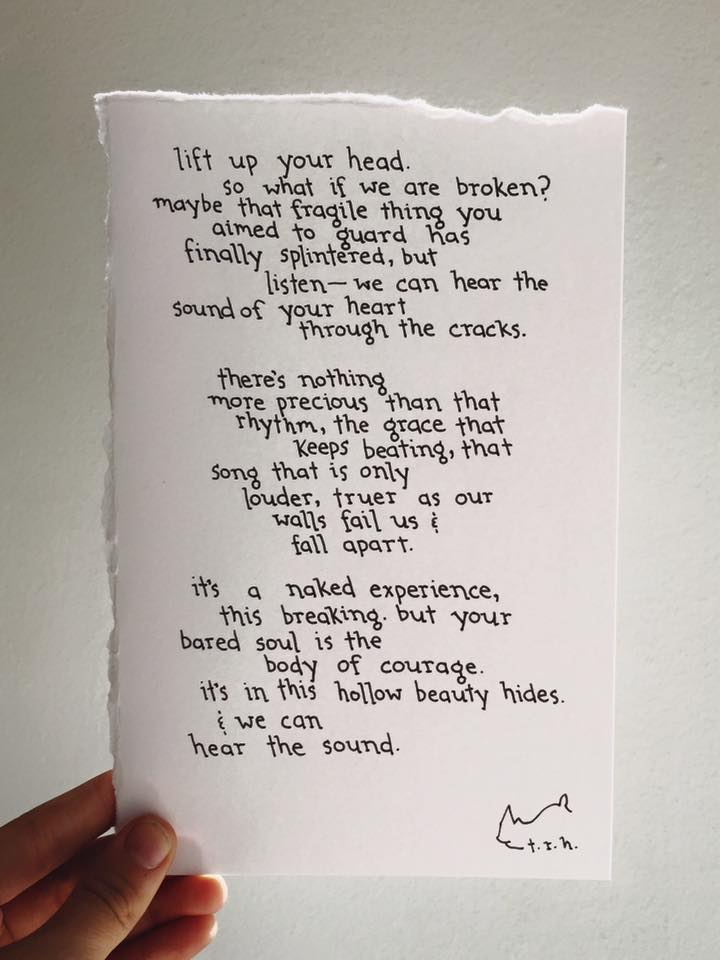 lift up your head.
so what if we are broken?
maybe that fragile thing you
aimed to guard has
finally splintered, but
listen— we can hear the
sound of your heart
through the cracks.
there's nothing
more precious than that
rhythm, the grace that
keeps beating, that
song that is only
louder, truer as our
walls fail us &
fall apart.
it's a naked experience,
this breaking. but your
bared soul is the
body of courage.
it's in this hollow beauty hides.
& we can
hear the sound.
t.r.h.